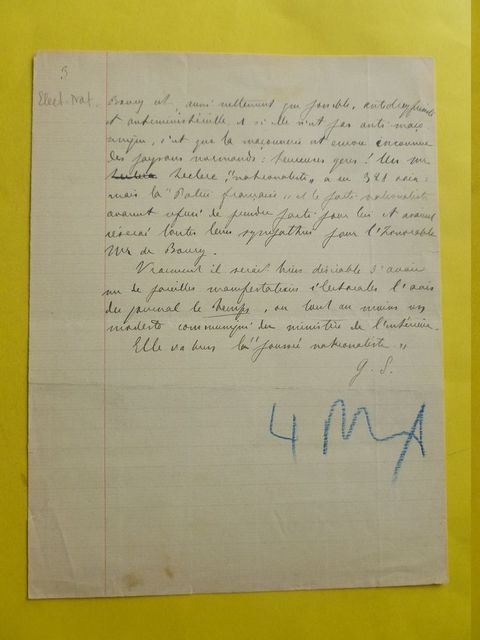 3
Elect. Nat.
Boury est aussi nettement que possible, antidreyfusarde
et antiministérielle et si elle n'est pas anti-maçon
nique, c'est que la maçonnerie est encore inconnue
des paysans normands : heureuses gens ! Un Mr
Leclerc, "nationaliste", a eu 321 voix :
mais la "Patrie française" et le parti nationaliste
avaient refusé de prendre parti pour lui et avaient
réservé toutes leurs sympathies pour l'honorable
Mr de Boury.
Vraiment il serait bien désirable d'avoir
sur de pareilles manifestations électorales l'avis
du journal le Temps, ou tout au moins un
modeste communiqué du ministère de l'intérieur.
Elle va bien la "fournée nationaliste".,
G. S.
4